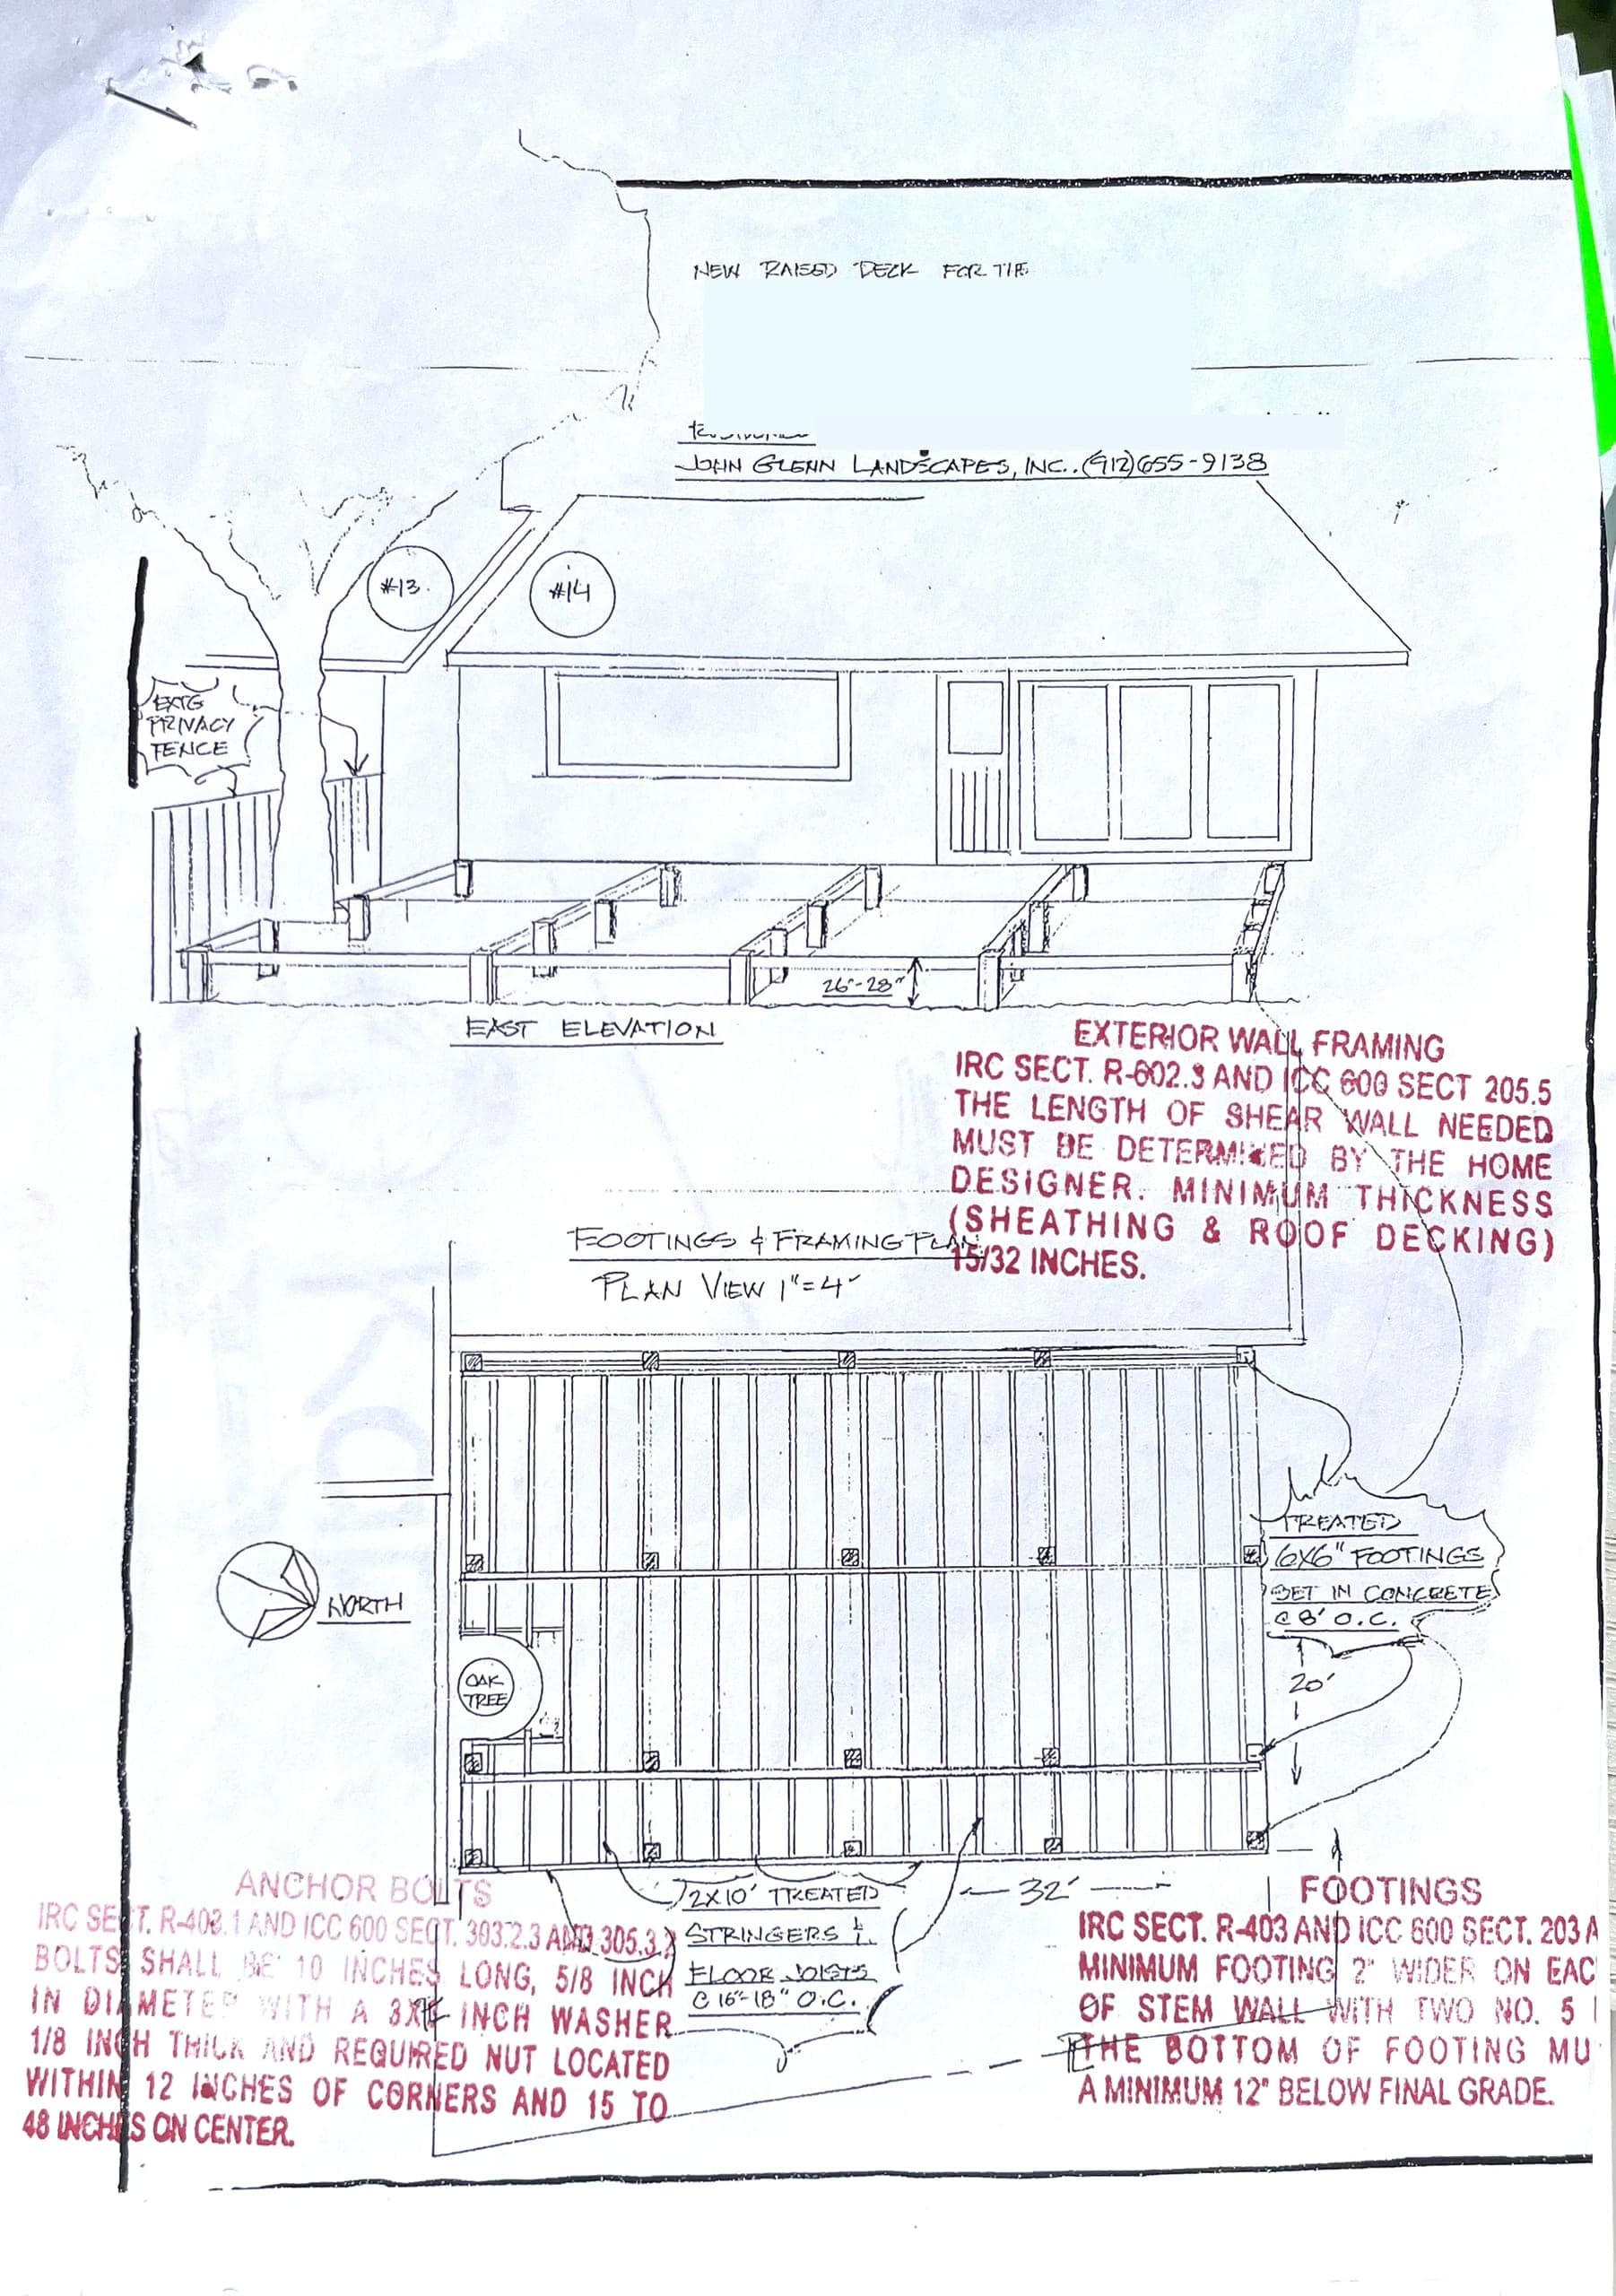 NEW RAISED DECK FOR THE
JOHN GLENN LANDSCAPES, INC. (912)655-9138
#13
#14
EXTG
PRIVACY
FENCE
26"-28"
EAST ELEVATION
EXTERIOR WALL FRAMING
IRC SECT. R-602.3 AND ICC 600 SECT 205.5
THE LENGTH OF SHEAR WALL NEEDED
MUST BE DETERMINED BY THE HOME
DESIGNER. MINIMUM THICKNESS
(SHEATHING & ROOF DECKING)
15/32 INCHES.
FOOTINGS & FRAMING PLAN
PLAN VIEW 1"=4'
TREATED
6X6" FOOTINGS
SET IN CONCRETE
@ 8' O.C.
NORTH
OAK
TREE
20'
2X10' TREATED
STRINGERS &
FLOOR JOISTS
@ 16"-18" O.C.
32'
ANCHOR BOLTS
IRC SECT. R-403.1 AND ICC 600 SECT. 303.2.3 AND 305.3.2
BOLTS SHALL BE 10 INCHES LONG, 5/8 INCH
IN DIAMETER WITH A 3X INCH WASHER
1/8 INCH THICK AND REQUIRED NUT LOCATED
WITHIN 12 INCHES OF CORNERS AND 15 TO
48 INCHES ON CENTER.
FOOTINGS
IRC SECT. R-403 AND ICC 600 SECT. 203 A
MINIMUM FOOTING 2" WIDER ON EAC
OF STEM WALL WITH TWO NO. 5
THE BOTTOM OF FOOTING MU
A MINIMUM 12" BELOW FINAL GRADE.